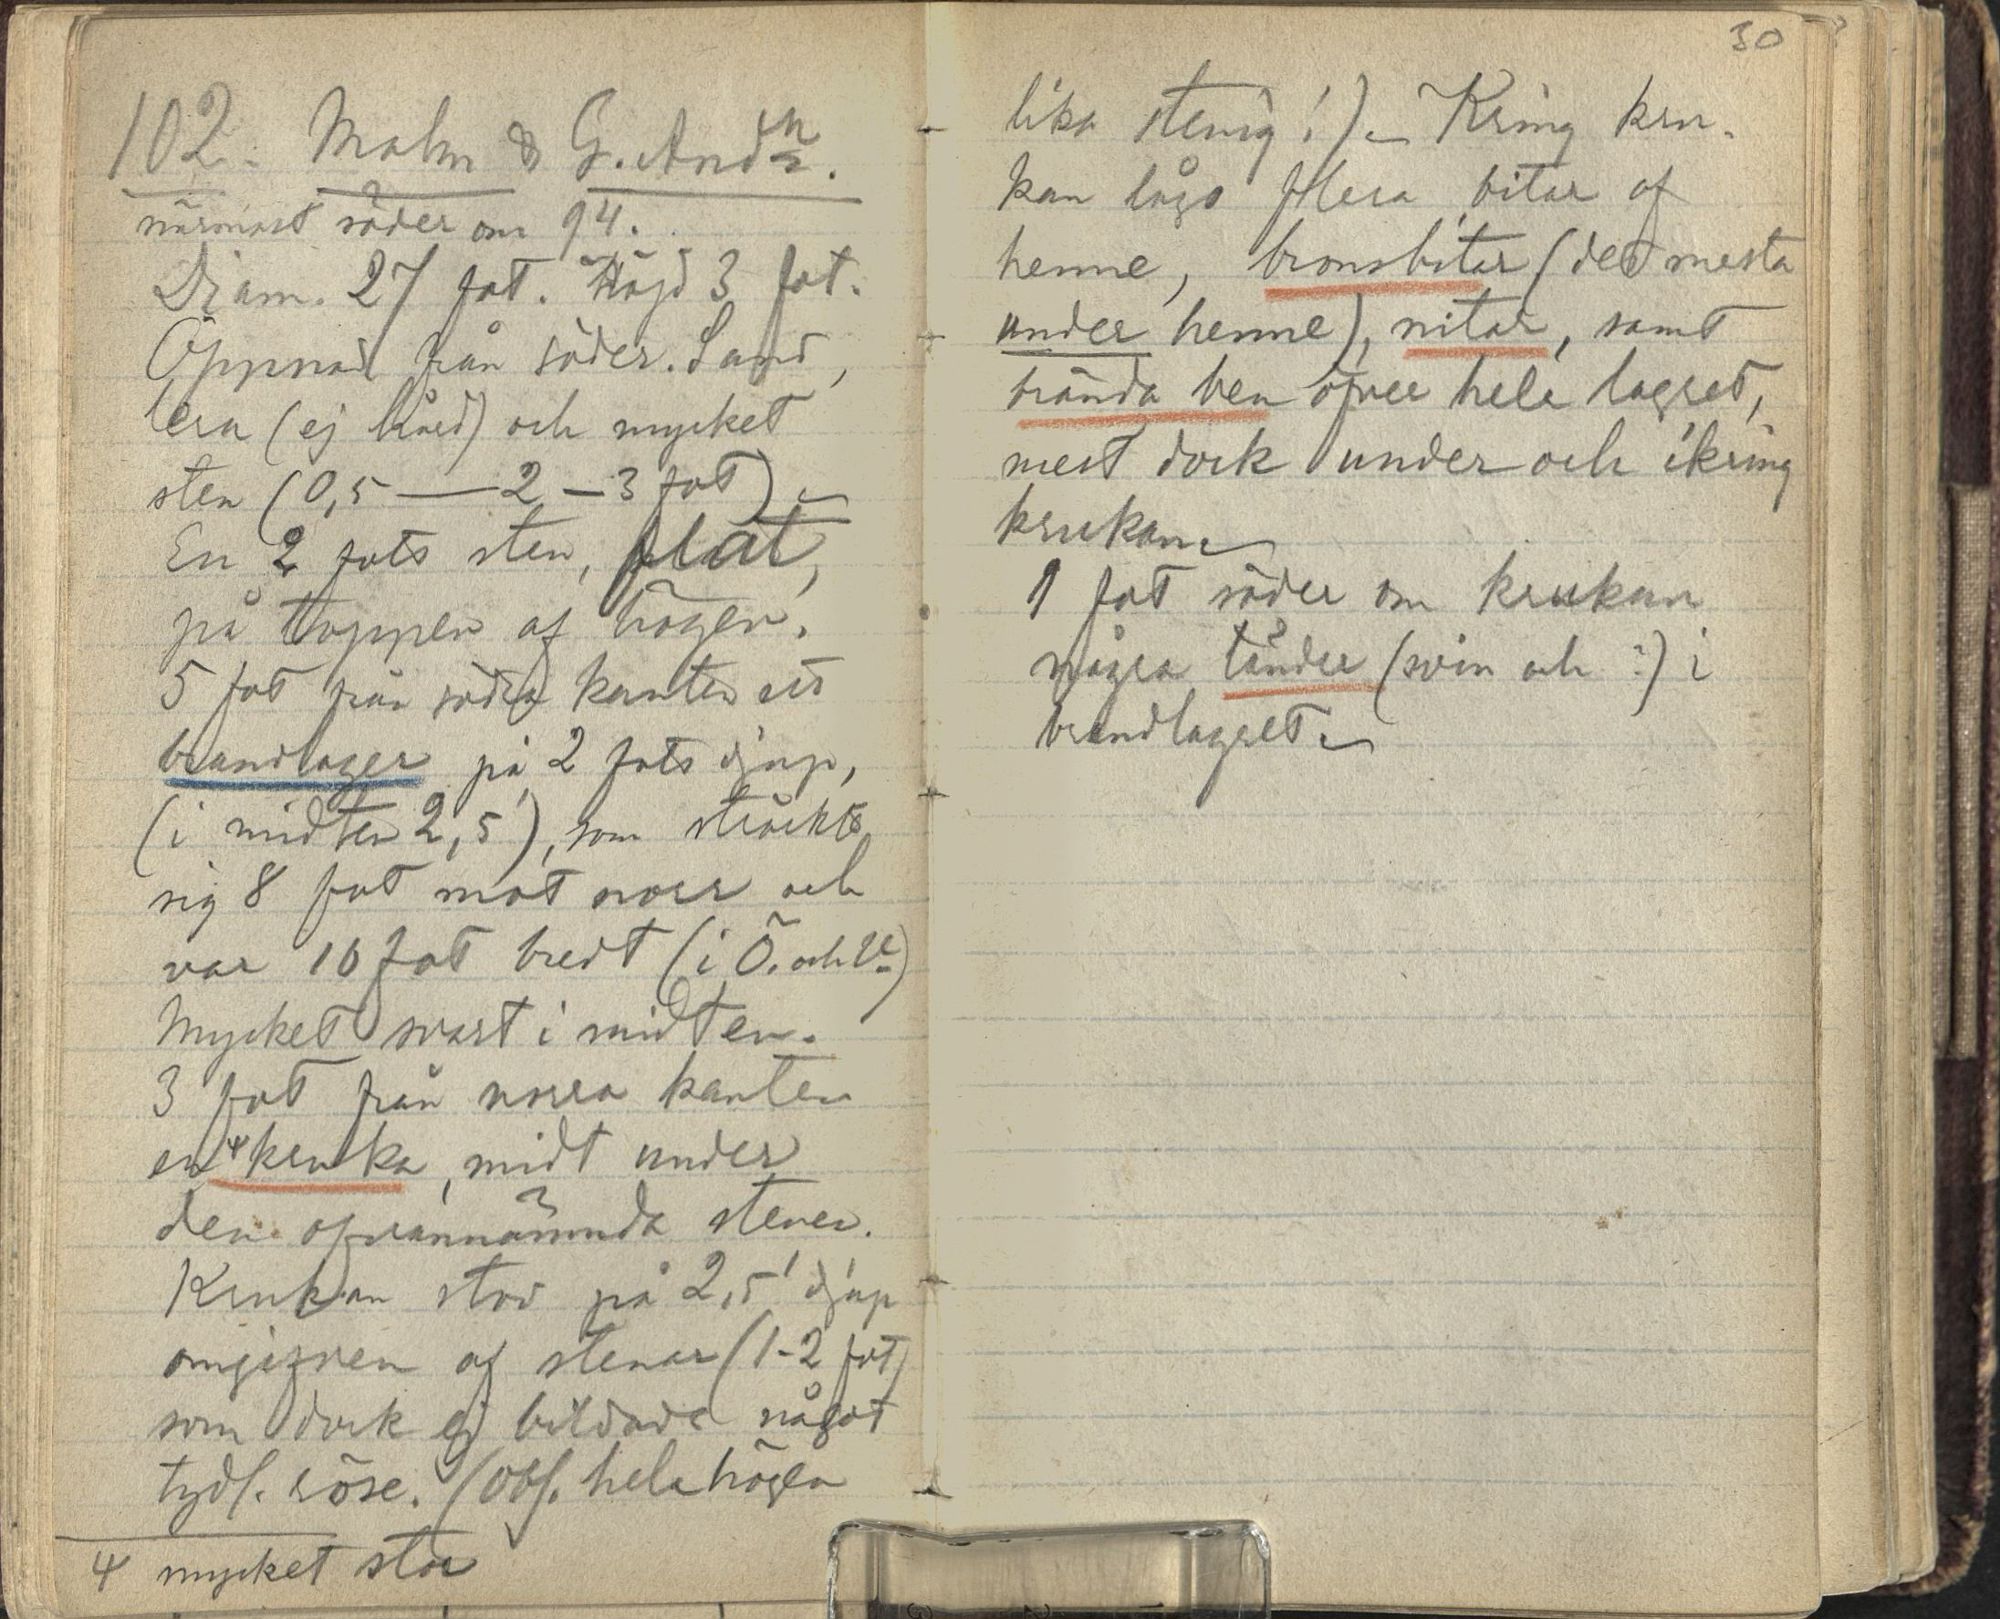 102. Malm & G. Andn.
närmast söder om 94.
Diam. 27 fot. Höjd 3 fot.
Öppnad från söder. Sand,
lera (ej hård) och mycket
sten (0,5 — 2 – 3 fot) –
En 2 fots sten, flat,
på toppen af högen.
5 fot från södra kanten ett
brandlager på 2 fots djup,
(i midten 2,5), som sträckte
sig 8 fot mot norr och
var 10 fot bredt (i Ö. och V.)
Mycket svart i midten.
3 fot från norra kanten
en ⁴ kruka, midt under
den ofvannämnda stenen.
Krukan stod på 2,5' djup
omgifven af stenar (1-2 fot)
som dock ej bildade något
tydl. röse. (Obs. hela högen
4 mycket stor
30
lika stenig!) – Kring kru-
kan lågo flera bitar af
henne, bronsbitar (det mesta
under henne), nitar, samt
brända ben öfver hela lagret,
mest dock under och ikring
krukan –
1 fot söder om krukan
några tänder (svin och ?) i
brandlagret –